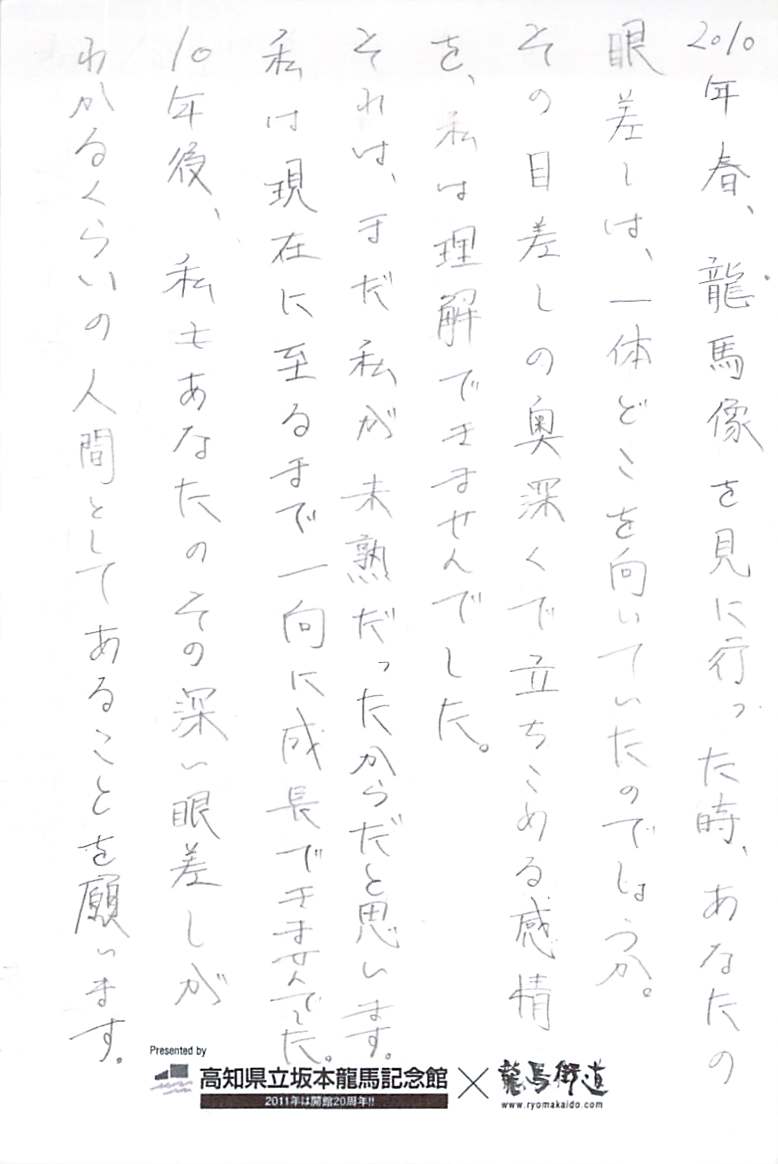 2010年春、龍馬像を見に行った時、あなたの
眼差しは、一体どこを向いていたのでしょうか。
その目差しの奥深くで立ちこめる感情
を、私は理解できませんでした。
それは、まだ私が未熟だったからだと思います。
私は現在に至るまで一向に成長できませんでした。
10年後、私もあなたのその深い眼差しが
わかるくらいの人間としてあることを願います。
Presented by
高知県立坂本龍馬記念館×龍馬街道
2011年は開館20周年!!
www.ryomakaido.com